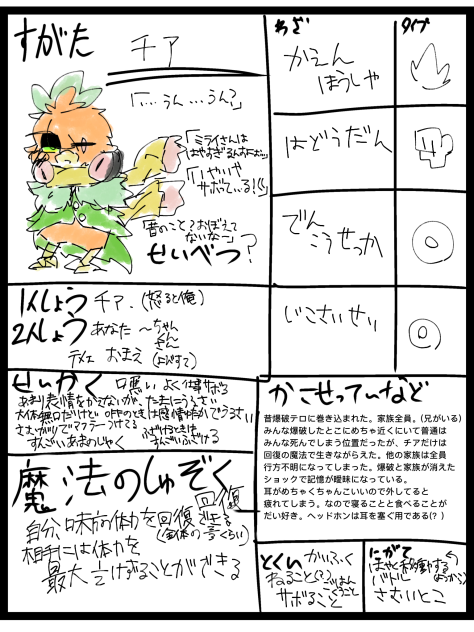 すがた
チア
「‥‥うん‥‥うん?」
「ミライさんは
はやすぎるんすよ…」
「いやいや
サボている!!」
「昔のこと?おぼえて
ないなー」
せいべつ?
わざ
タイプ
かえん
ほうしゃ
はどうだん
でん
こうせっか
じこさいせい
1人しょう チア、(怒ると俺)
2人しょう あなた 〜ちゃん
くん
さん
テメェ おまえ
せいかく 口悪い よく仕事サボる
あまり表情をかえないが、たまにうるさい
さむがりでマフラーつけてる
すごいあまのじゃく
ふざけるときは
すんごいふざける
魔法のしゅぞく 回復
自分、味方の体力を回復させる
(全体の
相手には体力を
最大
することができる
かこせっていなど
昔爆破テロに巻き込まれた。家族全員。(兄がいる)
みんな爆破したとこにめちゃ近くにいて普通は
みんな死んでしまう位置だったが、チアだけは
回復の魔法で生きながらえた。他の家族は全員
行方不明になってしまった。爆破と家族が消えた
ショックで記憶が曖昧になっている。
耳がめちゃくちゃんこいいので外してると
疲れてしまう。なので寝ることと食べることが
だい好き。ヘッドホンは耳を塞ぐ用である(?)
とくい かいふく
ねること(?)
ごはん
くうこと
サボること
にがて
はやく移動する
バトル
さむいとこ